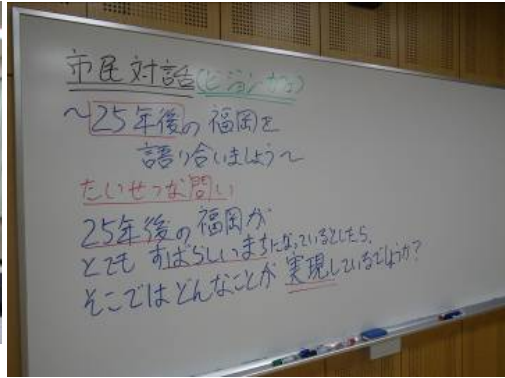 市民対話(ビジョンカフェ)
～25年後の福岡を
語り合いましょう～
たいせつな問い
25年後の福岡が
とても すばらしいまちになっているとしたら、
そこではどんなことが 実現しているでしょうか?